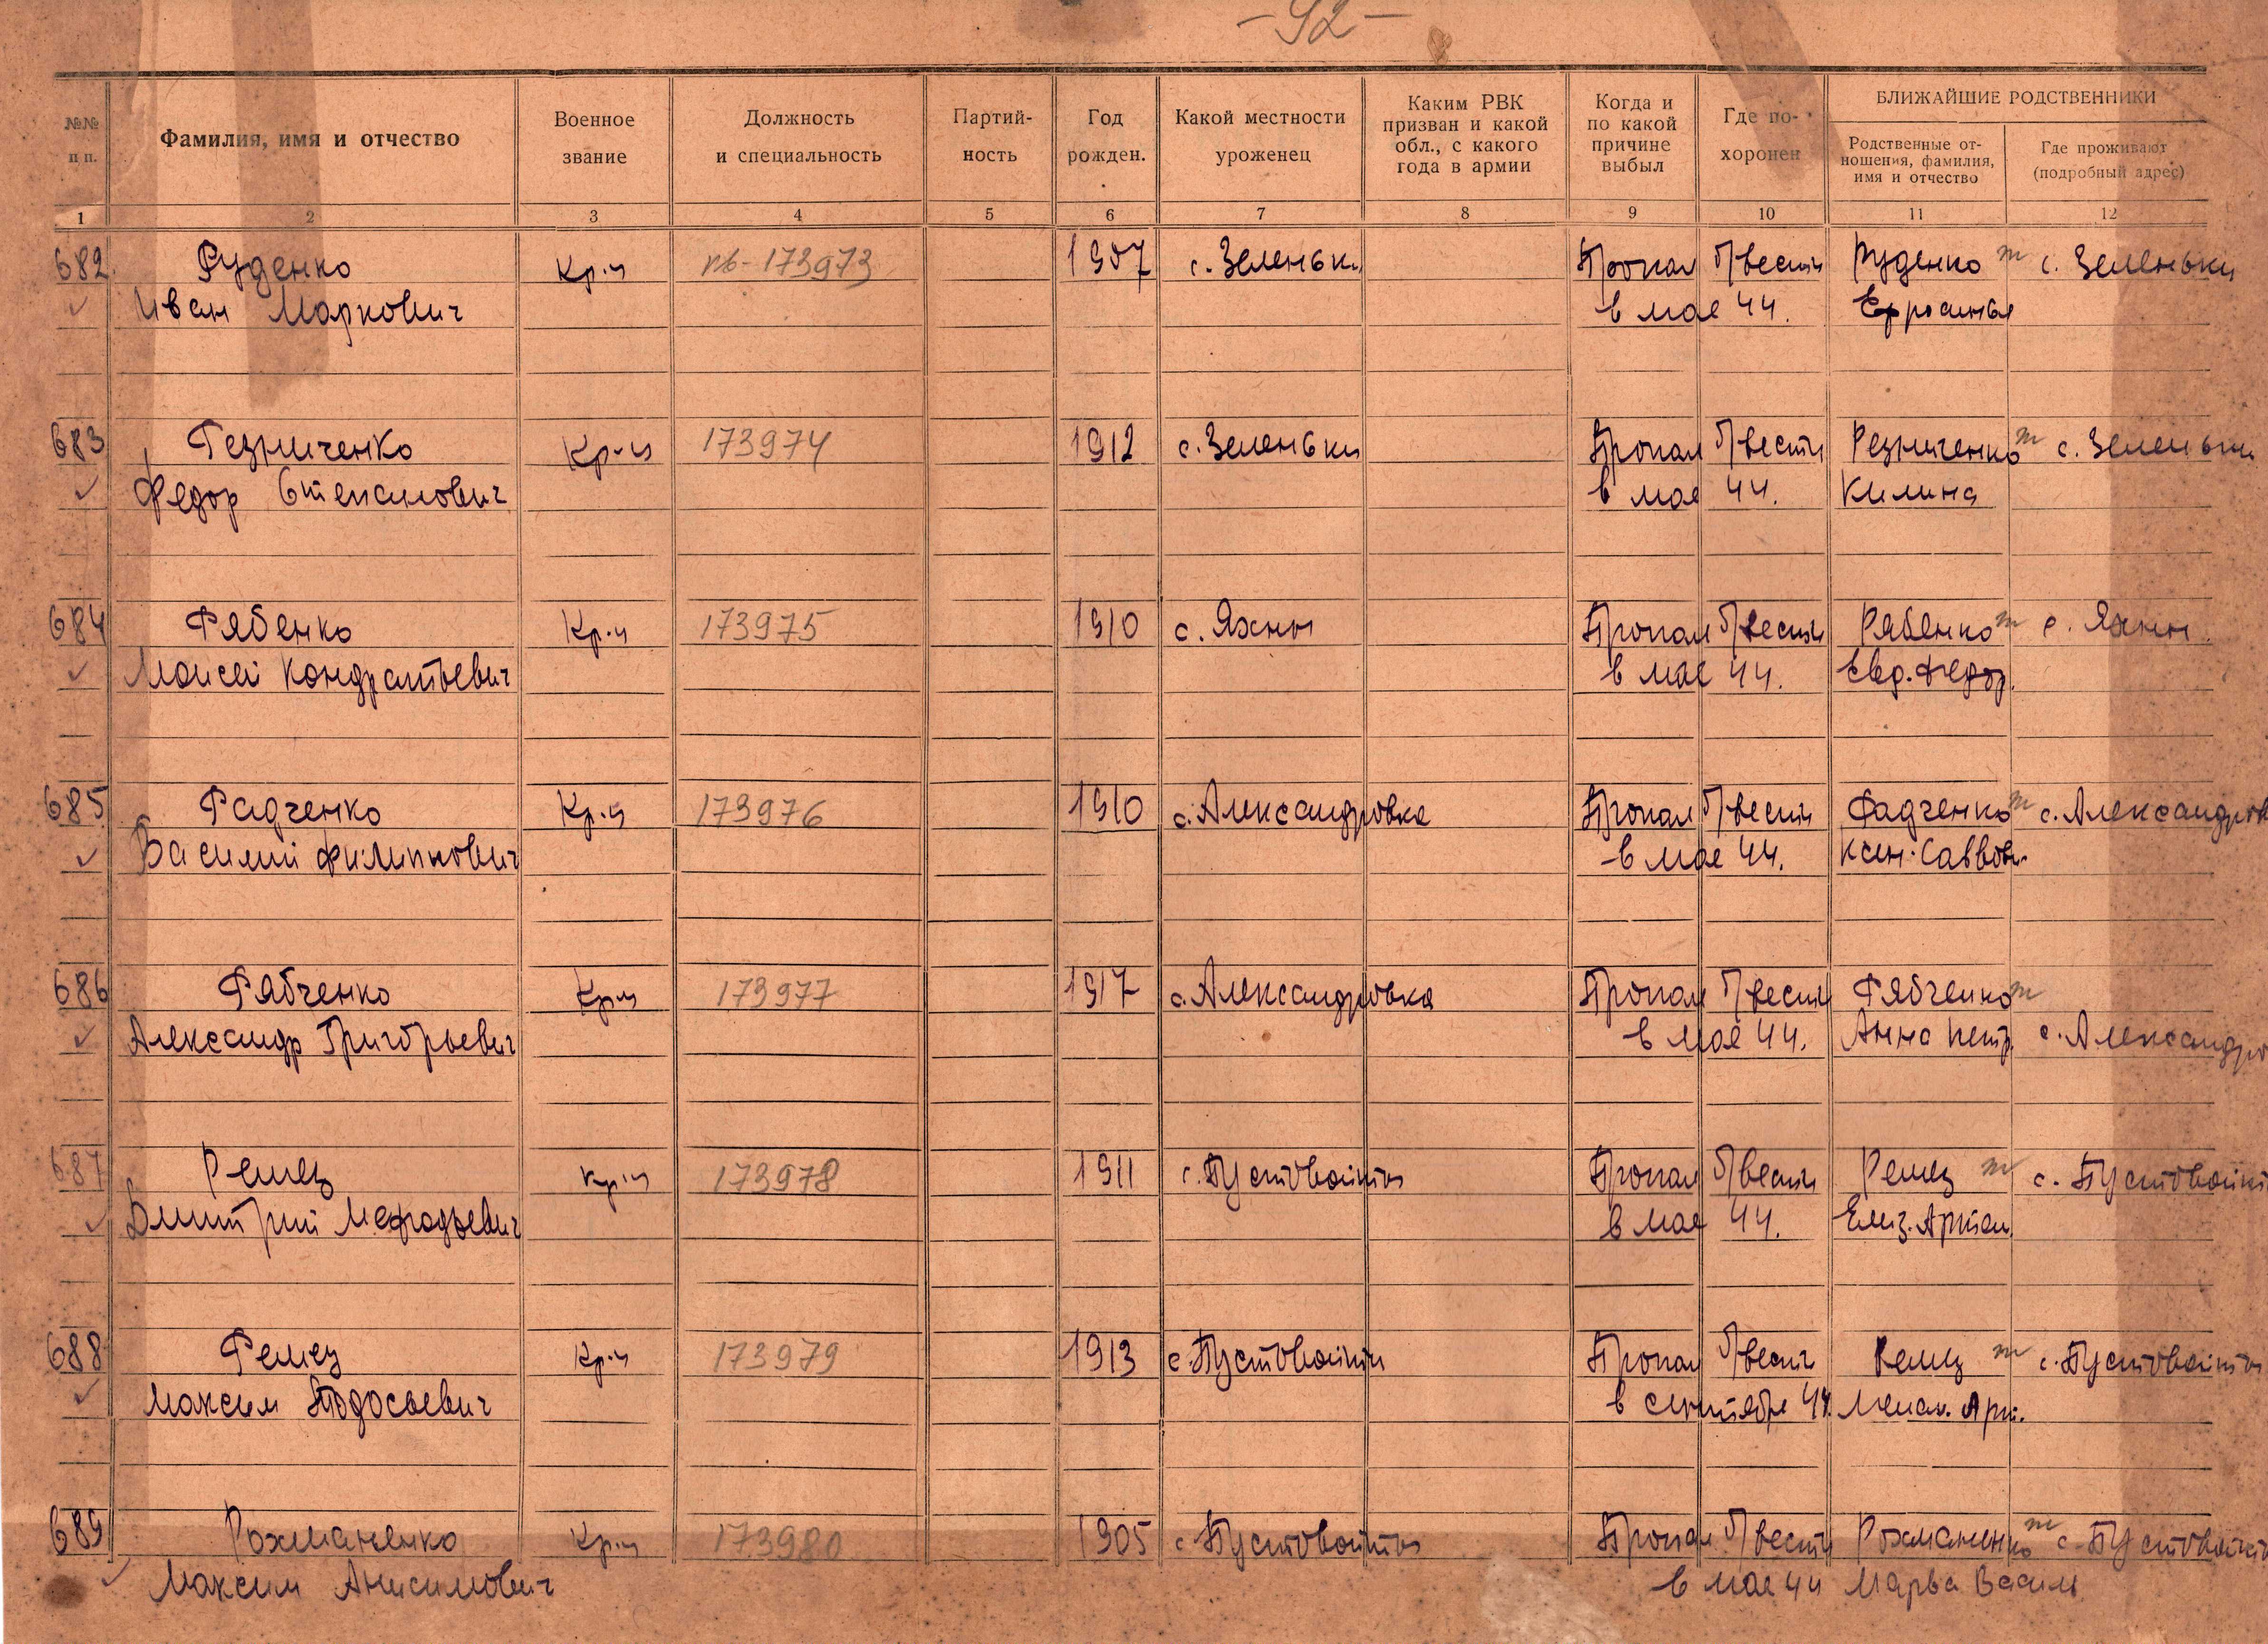 -92-
№№ п п.
Фамилия, имя и отчество
Военное звание
Должность и специальность
Партий-ность
Год рожден.
Какой местности уроженец
Каким РВК призван и какой обл., с какого года в армии
Когда и по какой причине выбыл
Где по-хоронен
БЛИЖАЙШИЕ РОДСТВЕННИКИ
Родственные от-ношения, фамилия, имя и отчество
Где проживают (подробный адрес)
1 2 3 4 5 6 7 8 9 10 11 12
682 Руденко Кр-ц 173973 1907 с. Зеленьки Пропал б/вести Руденко с. Зеленьки
Иван Маркович в мае 44. Ефросинья
683 Резниченко Кр-ц 173974 1912 с. Зеленьки Пропал б/вести Резниченко с. Зеленьки
Федор Степанович в мае 44. Килина
684 Рябенко Кр-ц 173975 1910 с. Яхны Пропал б/вести Рябенко с. Яхны
Моисей Кондратьевич в мае 44. Евд. Федор.
685 Радченко Кр-ц 173976 1910 с. Александровка Пропал б/вести Радченко с. Александров
Василий Филиппович в мае 44. Ксен. Саввов.
686 Рябченко Кр-ц 173977 1917 с. Александровка Пропал б/вести Рябченко
Александр Григорьевич в мае 44. Анна Петр. с. Александро
687 Ремез кр-ц 173978 1911 с. Пустовойты Пропал б/вести Ремез с. Пустовойт
Дмитрий Мефодьевич в мае 44. Елиз. Артем.
688 Ремез Кр-ц 173979 1913 с. Пустовойты Пропал б/вести Ремез с. Пустовойты
Максим Тодосьевич в сентябре 44. Мелан. Арт.
689 Рохманенко Кр-ц 173980 1905 с. Пустовойты Пропал б/вести Рохманенко с. Пустовойт
Максим Анисимович в мае 44 Марва Васил